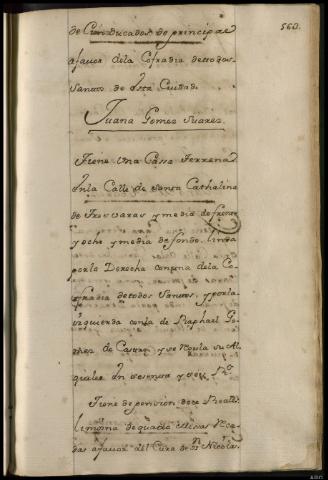 560.
de Cien Ducados de principal
afavor dela Cofradia de todos
Santos de esta Ciudad.
Juana Gomes Suares
Tiene Una Cassa Terrena
En la Calle de Santa Cathalina
de tres varas y media de frente
y ocho y media de fondo, linda
por la Derecha con una dela Co
fradia de todos Santos, y por la
izquierda con la de Raphael Go
mes de Castro y se regula su Al
quiler en sesenta y seis Rs
Tiene de pension doze Reales
limosna de quatro Misas Reza
das afavor del Cura de Sn Nicolas.